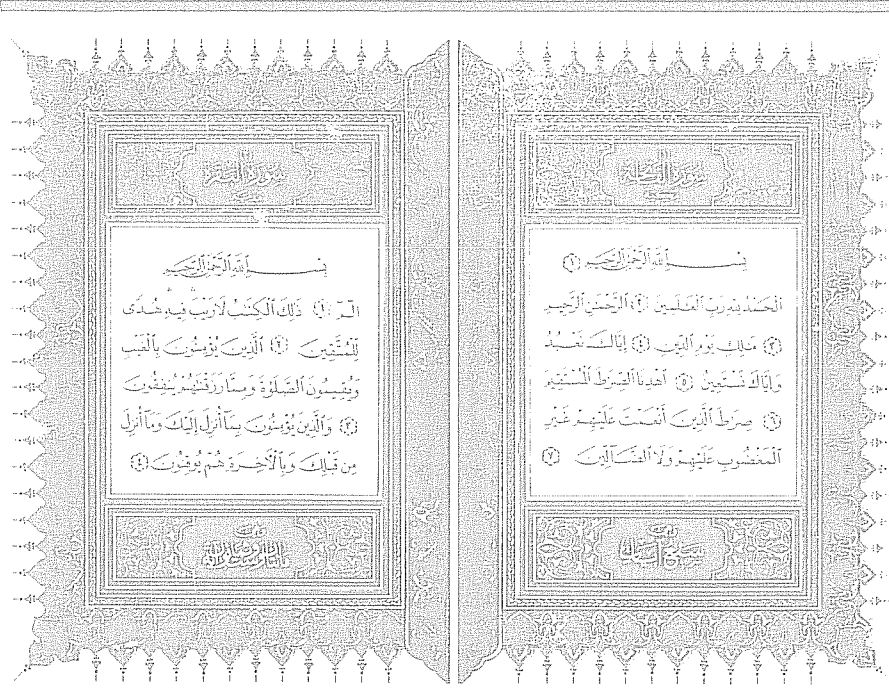 سورة الفاتحة
بِسْمِ ٱللَّهِ ٱلرَّحْمَٰنِ ٱلرَّحِيمِ ١
ٱلْحَمْدُ لِلَّهِ رَبِّ ٱلْعَٰلَمِينَ ٢ ٱلرَّحْمَٰنِ ٱلرَّحِيمِ
٣ مَٰلِكِ يَوْمِ ٱلدِّينِ ٤ إِيَّاكَ نَعْبُدُ
وَإِيَّاكَ نَسْتَعِينُ ٥ ٱهْدِنَا ٱلصِّرَٰطَ ٱلْمُسْتَقِيمَ
٦ صِرَٰطَ ٱلَّذِينَ أَنْعَمْتَ عَلَيْهِمْ غَيْرِ
ٱلْمَغْضُوبِ عَلَيْهِمْ وَلَا ٱلضَّآلِّينَ ٧
سورة البقرة
بِسْمِ ٱللَّهِ ٱلرَّحْمَٰنِ ٱلرَّحِيمِ
الٓمٓ ١ ذَٰلِكَ ٱلْكِتَٰبُ لَا رَيْبَ فِيهِ هُدًى
لِّلْمُتَّقِينَ ٢ ٱلَّذِينَ يُؤْمِنُونَ بِٱلْغَيْبِ
وَيُقِيمُونَ ٱلصَّلَوٰةَ وَمِمَّا رَزَقْنَٰهُمْ يُنفِقُونَ
٣ وَٱلَّذِينَ يُؤْمِنُونَ بِمَآ أُنزِلَ إِلَيْكَ وَمَآ أُنزِلَ
مِن قَبْلِكَ وَبِٱلْءَاخِرَةِ هُمْ يُوقِنُونَ ٤